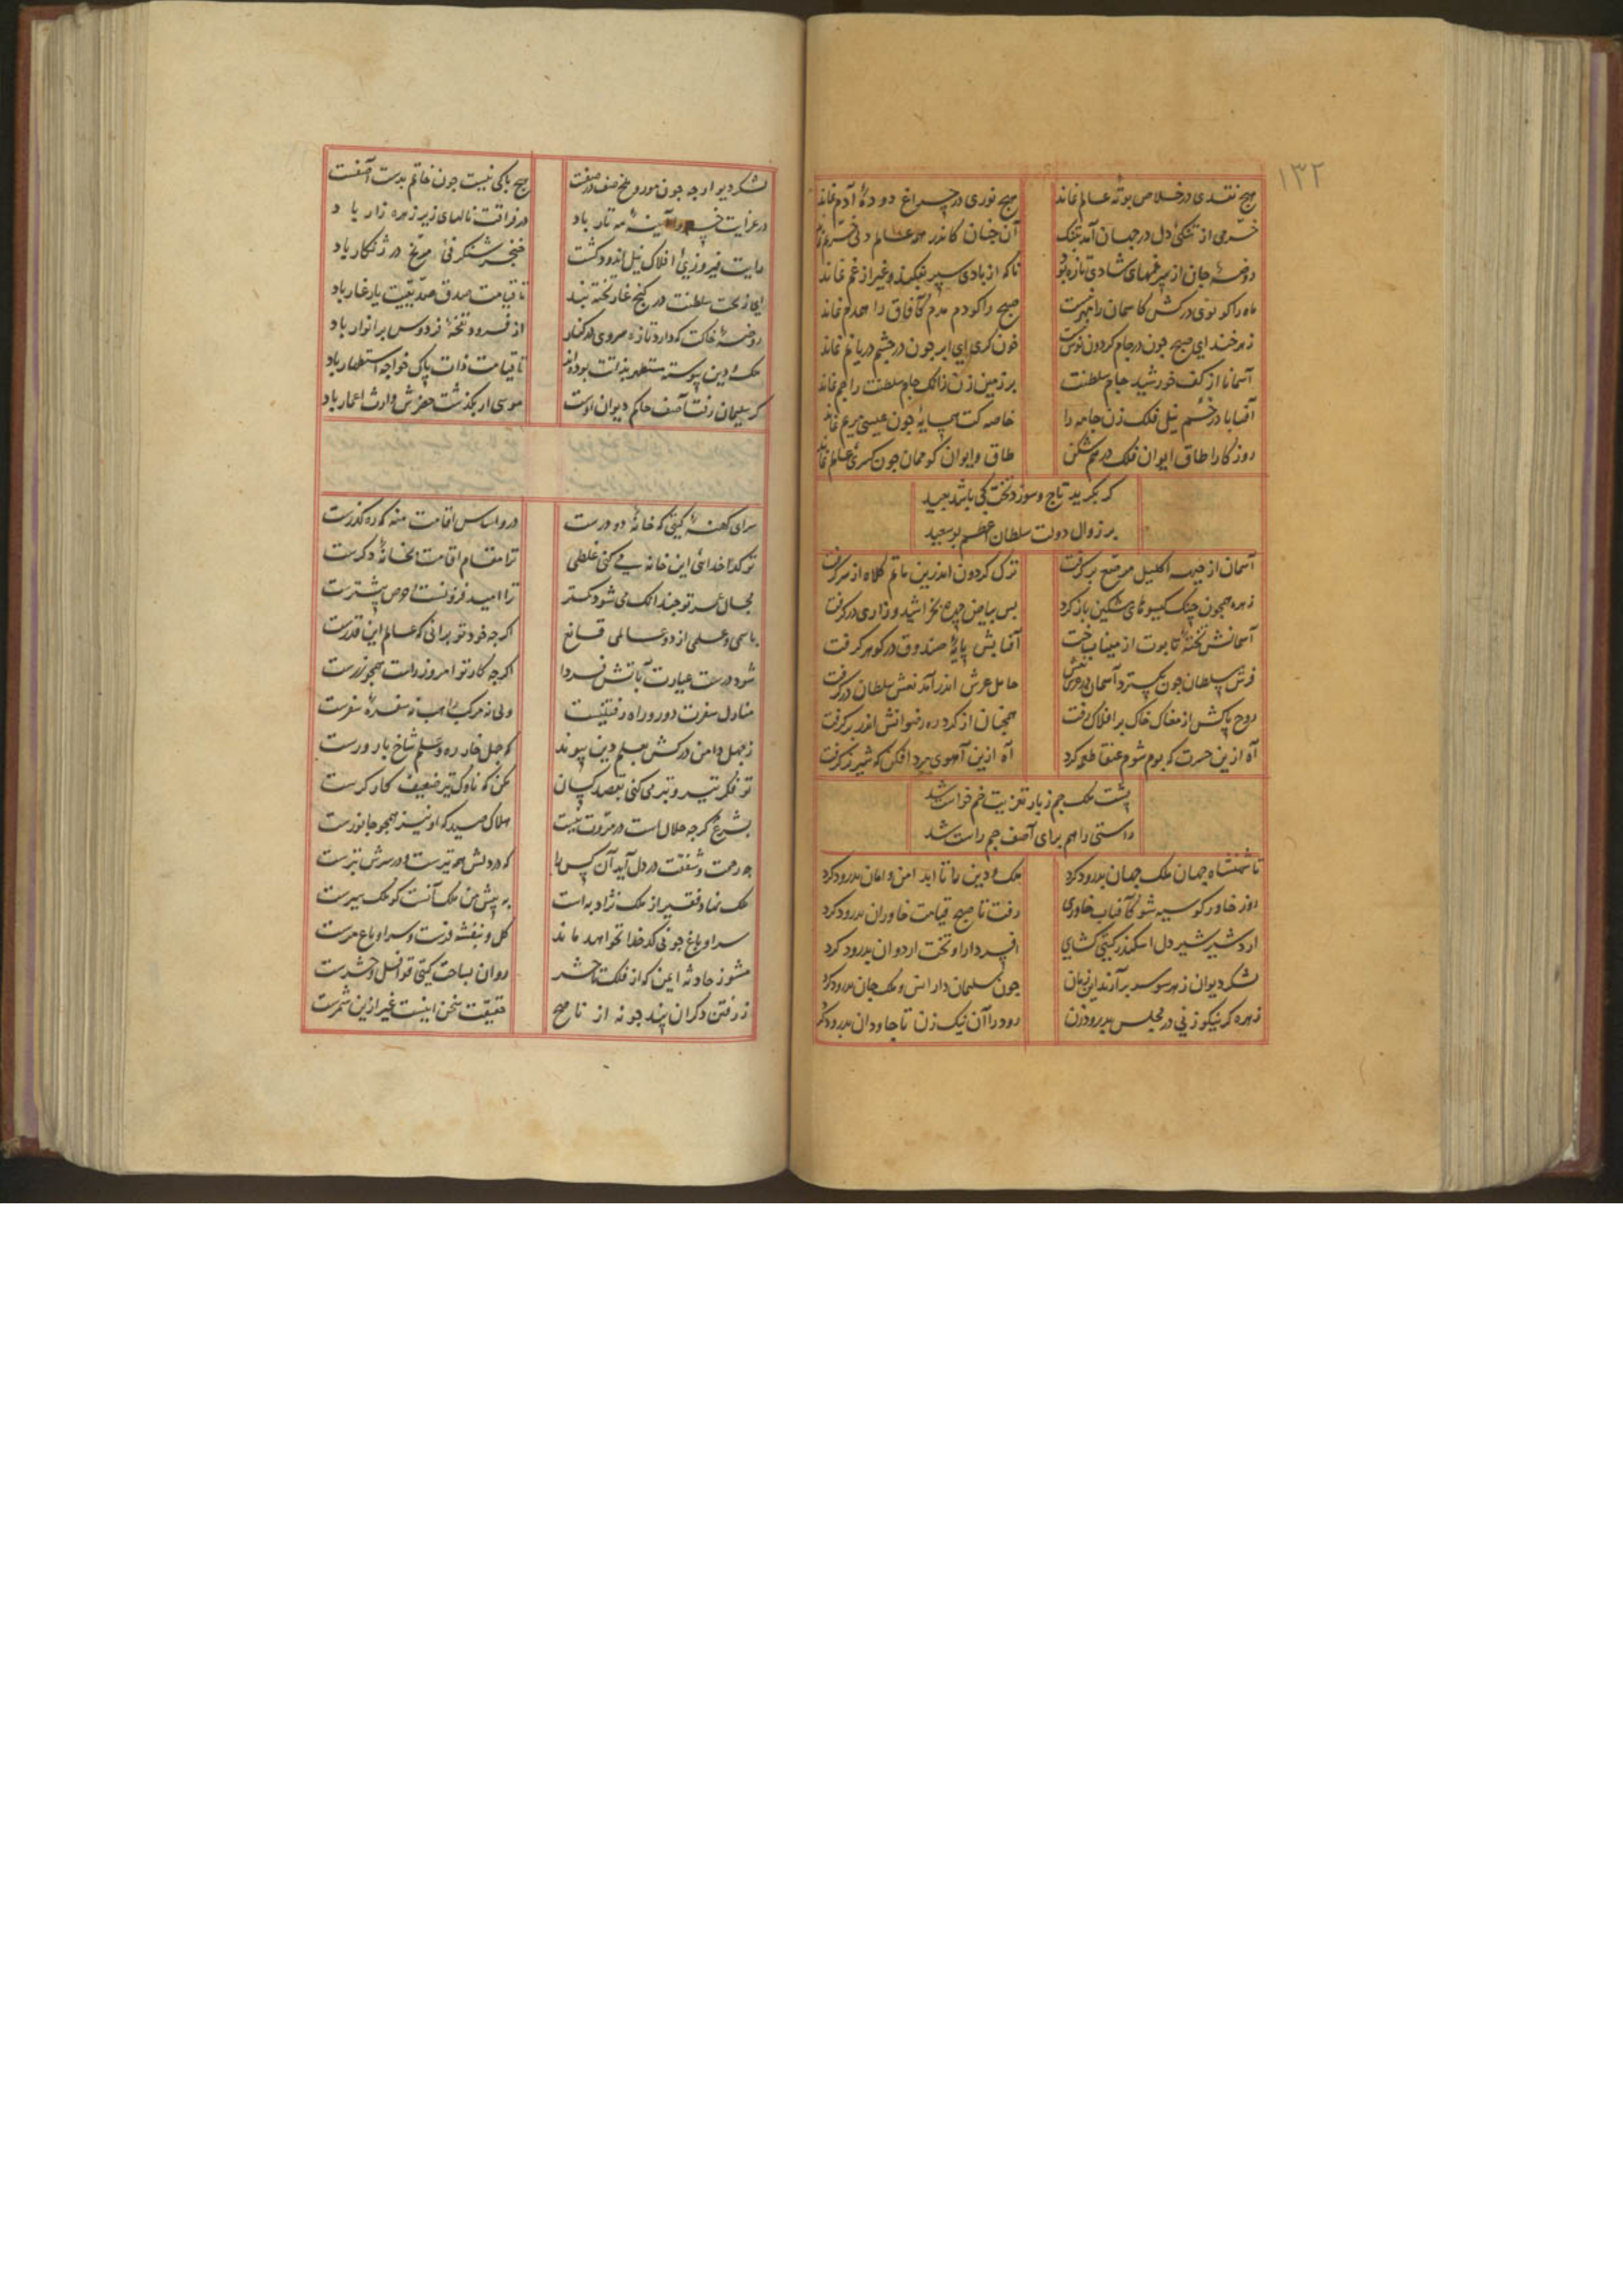 ۱۳۲
هیچ نقدی در خلاص بوتهٔ عالم نماند هیچ نوری در چراغ دودهٔ آدم نماند
خرّمی از تنکیٔ دل در جهان آمد بتنک آن جنان کاندر همه عالم دلی خرّم نماند
روضهٔ جان از سپرغمهای شادی تازه بود تا که از بادی سپر بفکند و غیر از غم نماند
ماه را کو نوی در کش کاسمان را مهر نیست صبح را کو دم مدم کآفاق را همدم نماند
زهر خند ای صبح جون در جام کردون نوش نیست خون کری ای ابر جون در جشم دریا نم نماند
آسمانا از کف خورشید جام سلطنت بر زمین زن زانک جام سلطنت را جم نماند
آفتابا در خُم نیل فلک زن جامه را خاصه کت همسایهٔ جون عیسی مریم نماند
روزکارا طاق ایوان فلک درهم شکن طاق و ایوان کو ممان جون کسریٔ عالم نماند
کر بکرید تاج و سوزد تخت کی باشد بعید
بر زوال دولت سلطان اعظم بوسعید
آسمان از جبهه اکلیل مرصّع برکرفت ترک کردون اندرین ماتم کلاه از سر کرفت
زهره همجون جنک کیسوهای مشکین باز کرد بس بیاض جهره بخراشید و زاری درکرفت
آسمانش تختهٔ تابوت از مینا بساخت آفتابش پایهٔ صندوق در کوهر کرفت
فرش سلطان جون بکسترد آسمان در عرش نعش حامل عرش اندر آمد نعش سلطان درکرفت
روح پاکش از مغاک خاک بر افلاک رفت همجنان از کرد ره رضوانش اندر بر کرفت
آه ازین حسرت که بوم شوم عنقا طعمه کرد آه ازین آهوی مرد افکن که شیر نر کرفت
پشت ملک جم ز بار تعزیت خم خواست شد
راستی را هم برای آصف جم راست شد
تا شهنشاه جهان ملک جهان بدرود کرد ملک و دین را تا ابد امن و امان بدرود کرد
روز خاور کو سیه شو کآفتاب خاوری رفت تا صبح قیامت خاوران بدرود کرد
اردشیر شیر دل اسکندر کیتی کشای افسر دارا و تخت اردوان بدرود کرد
لشکر دیوان ز هر سو سر برآرند این زمان جون سلیمان دار انس و ملک جان بدرود کرد
زهره کر نیکو زنی در مجلس بدرود زن رود را آن نیک زن تا جاودان بدرود کرد
لشکر دیو ار جه جون مور و ملخ صف در صفست هیچ باکی نیست جون خاتم بدست آصفست
در عزایت آینهٔ مه تار باد در فراقت نالهای زیر زهره زار باد
رایت فیروزیٔ افلاک نیل اندود کشت خنجر شنکرفیٔ مریخ در زنکار باد
ای ز تخت سلطنت در کنج غار تخته بند تا قیامت صدق صدّیقیت یار غار باد
روضهٔ خاکت که دارد تازه سروی در کنار از فروود نفحهٔ فردوس پر انوار باد
ملک و دین پیوسته مستظهر بذاتت بوده‌اند تا قیامت ذات پاک خواجه استظهار باد
کر سلیمان رفت آصف حاکم دیوان اوست موسی ار بکذشت خضرش وارث اعمار باد
سرای کهنهٔ کیتی که خانهٔ دو درست درو اساس اقامت منه که ره کذرست
تو کدخدائی این خانه می کنی غلطی ترا مقام اقامت بخانهٔ دکرست
مجال عمر تو جندانک می شود کمتر ترا امید فزونست و حرص پیشترست
باسمی و علمی از دو عالمی قانع اکر جه خود تو برانی که عالم این قدرست
شود درست عیارت بآتش فردا اکر جه کار تو امروز راست همجو زرست
منازل سفرت دور و راه رفتنیست ولی نه مرکب راهست و نه سفرهٔ سفرست
ز جهل دامن درکش بعلم دین پیوند که جهل خار ره و علم شاخ بارورست
تو فکر تیر و تبر می کنی بقصد کسان مکن که ناوک تیر ضعیف کارکرست
بشرع کر جه حلال است در مروّت نیست هلاک صید که او نیز همجو جانورست
جه رحمت و شفقت در دل آید آن کس را که در دلش همه تیرست و در سرش تبرست
ملک نهاد فقیر از ملک نژاد به است به پیش من ملک آنست کو ملک سیرست
سرا و باغ جو بی کدخدا نخواهد ماند کل و بنفشه فرست و سرا و باغ مرست
مشو ز حادثه ایمن که از فلک تا حشر روان بساحت کیتی قوافل و حشرست
ز رفتن دکران پند جو نه از ناصح حقیقت سخن اینست غیر ازین سمرست